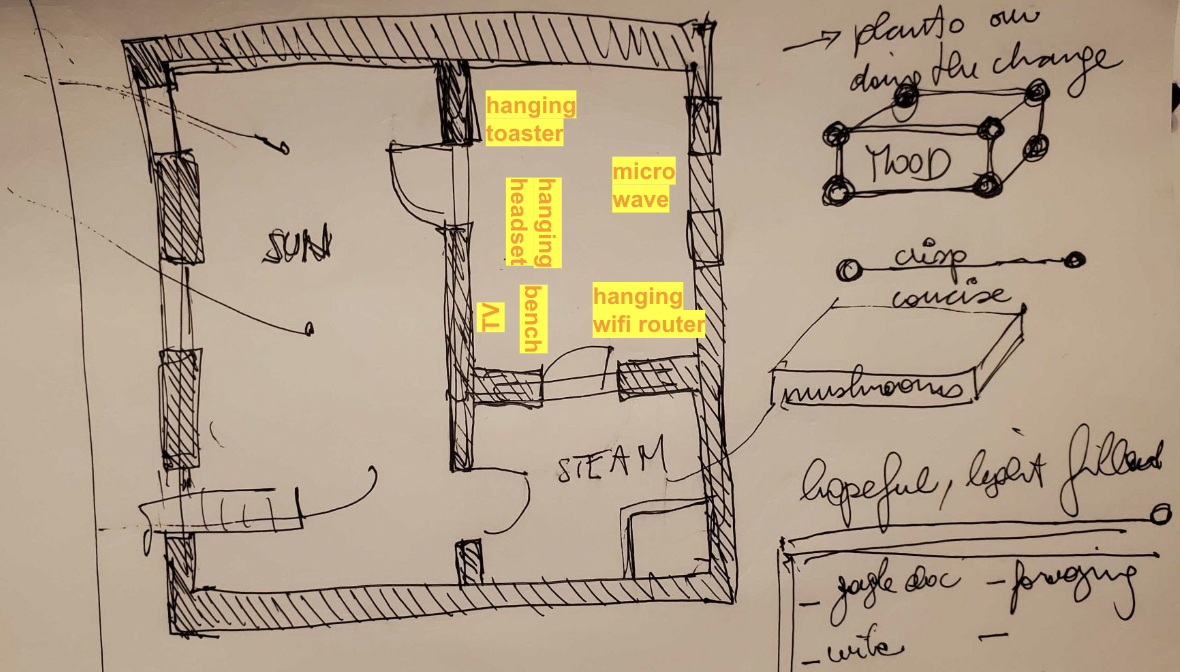 → planto our
doing the change
MOOD
crisp
concise
mushrooms
hopeful, light filled
- gogle doc
- foraging
- write
-
SUN
hanging
toaster
micro
wave
hanging
headset
TV
bench
hanging
wifi router
STEAM